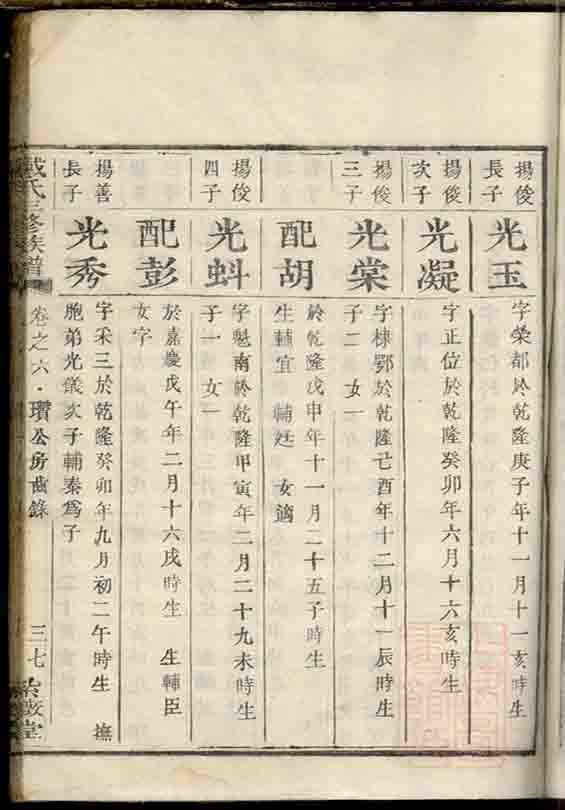 揚俊
長子
光玉
字榮都於乾隆庚子年十一月十一亥時生
揚俊
次子
光凝
字正位於乾隆癸卯年六月十六亥時生
揚俊
三子
光棠
字棣鄂於乾隆己酉年十二月十一辰時生
子二 女一
配胡
於乾隆戊申年十一月二十五子時生
生輔宜 輔廷 女適
揚俊
四子
光蚪
字魁南於乾隆甲寅年二月二十九未時生
子一 女一
配彭
於嘉慶戊午年二月十六戌時生 生輔臣
女字
揚善
長子
光秀
字采三於乾隆癸卯年九月初二午時生 撫
胞弟光儀次子輔秦爲子
戴氏三修族譜
卷之六
瓚公房齒錄
三七
敦堂